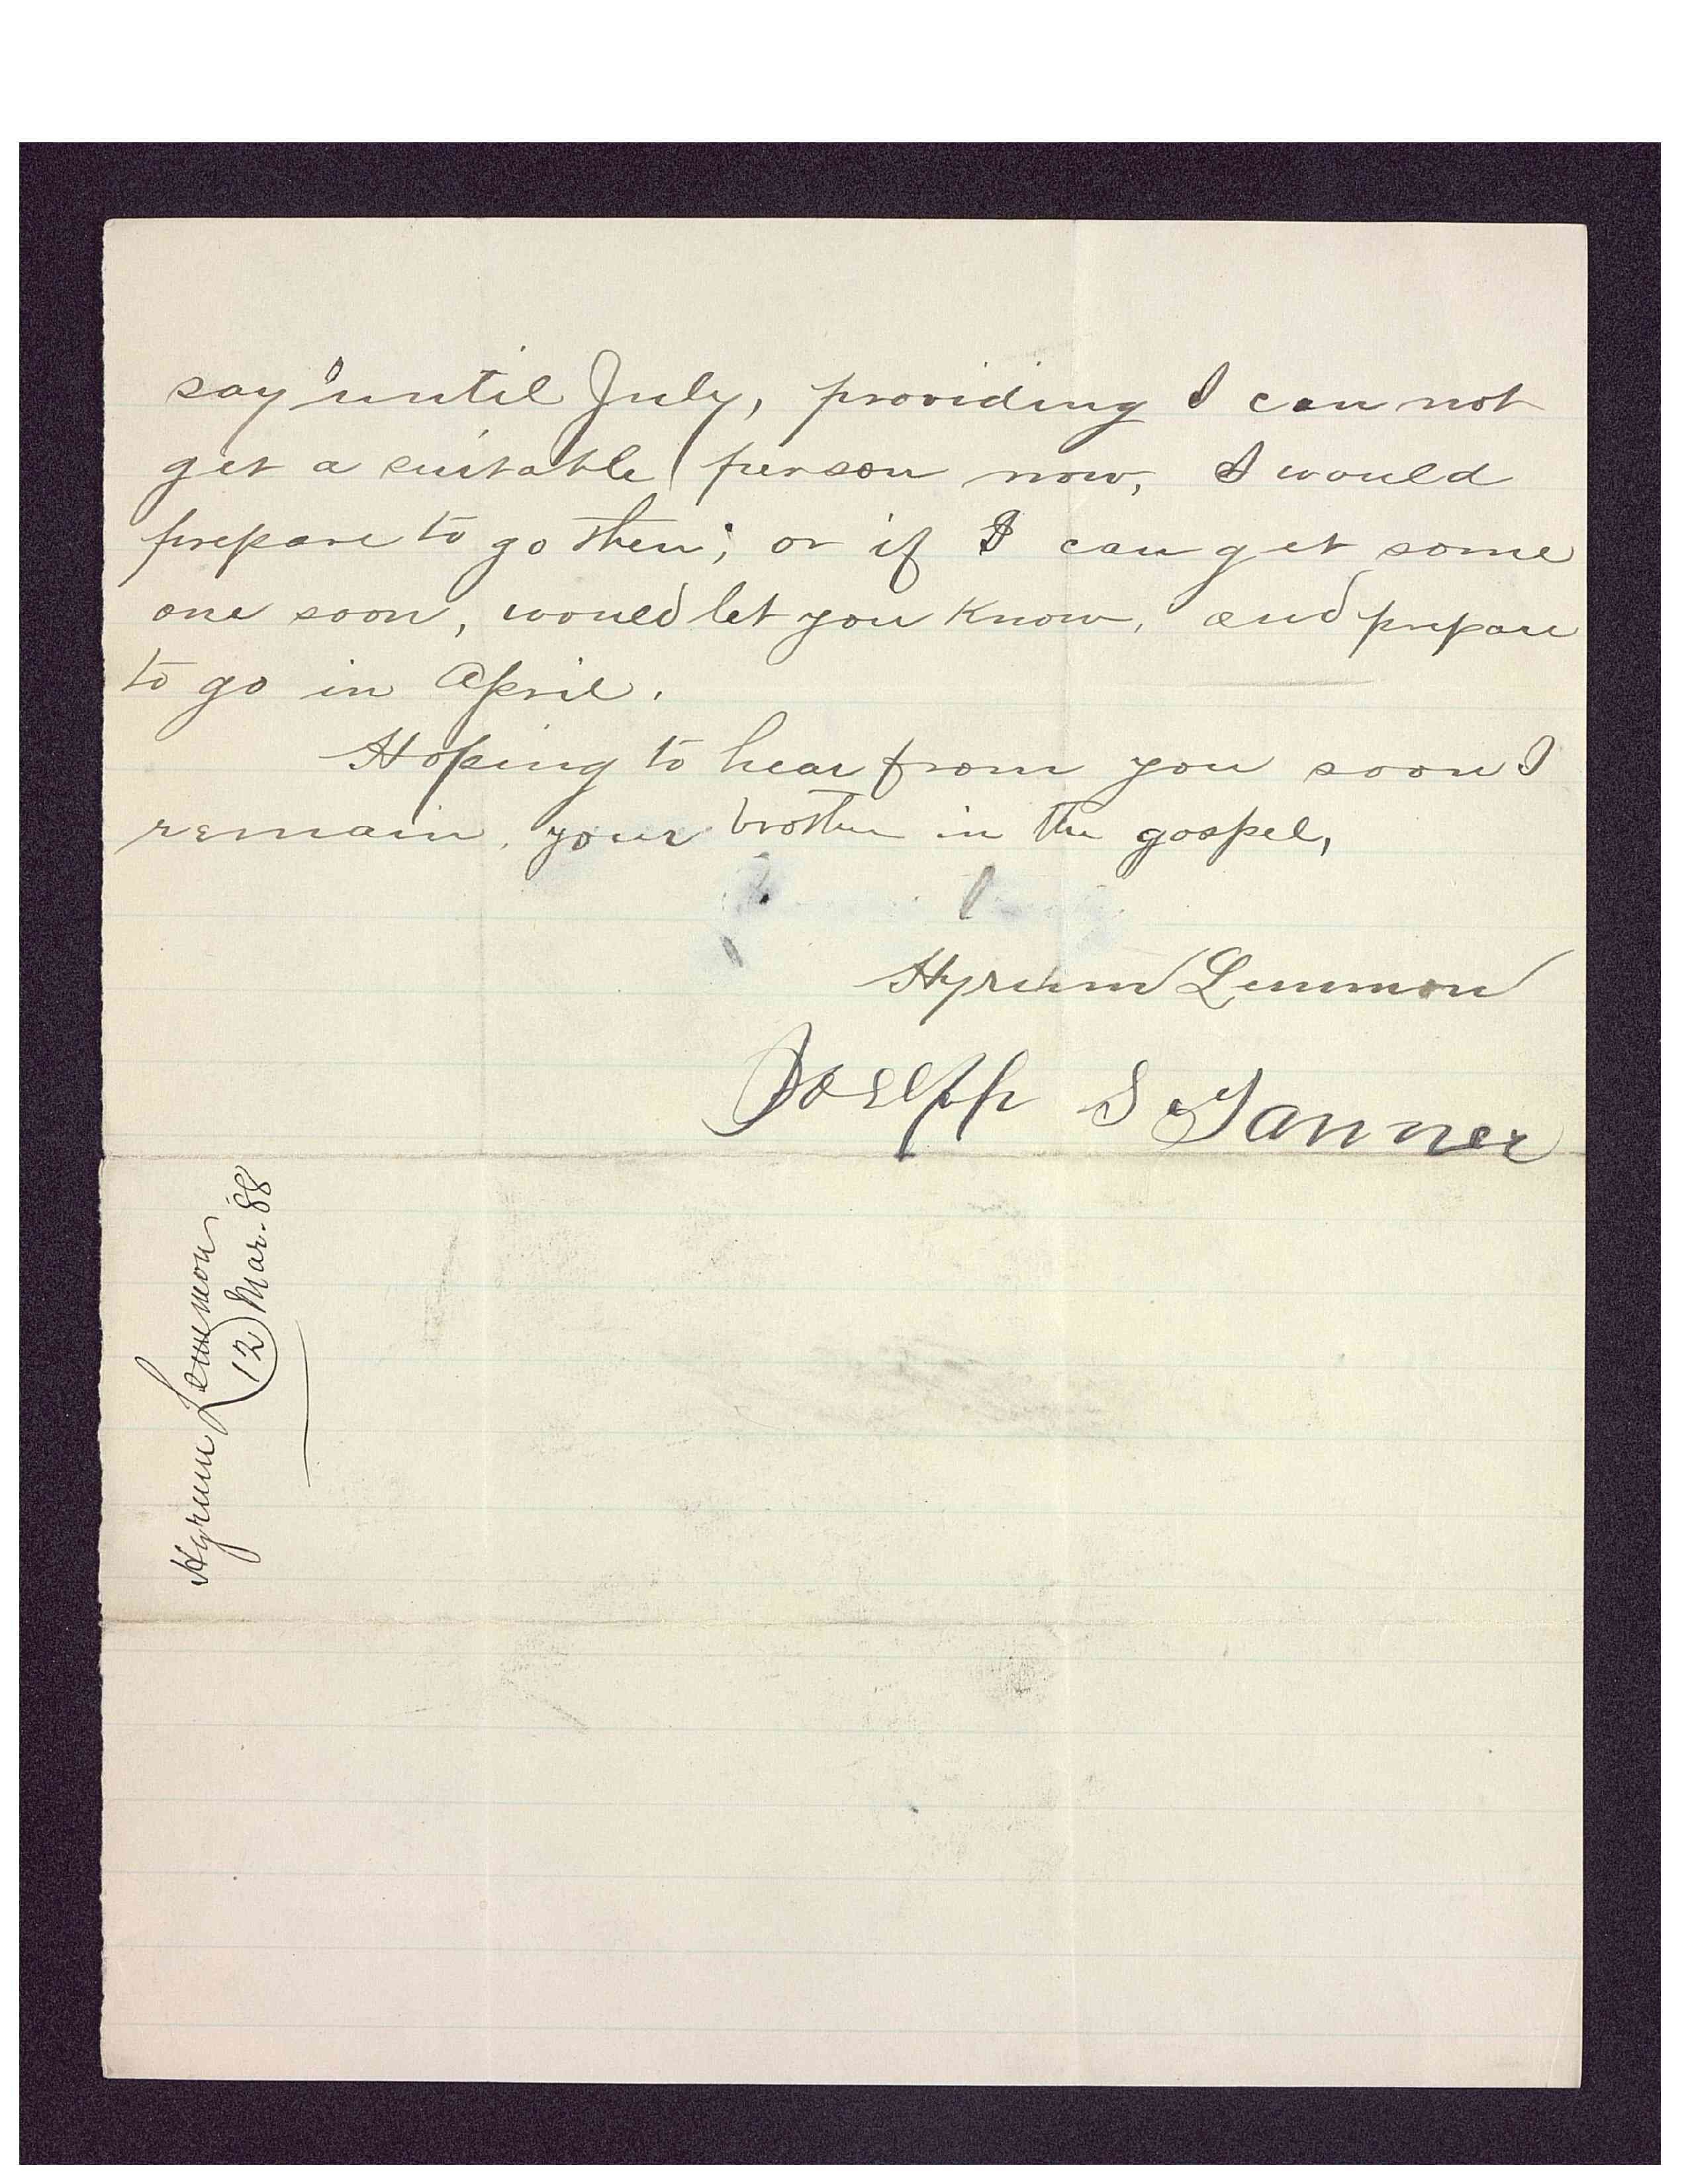 say until July, providing I can not
get a suitable person now, I would
prepare to go then; or if I can get some
one soon, would let you know, and prepare
to go in April.
Hoping to hear from you soon I
remain, your brother in the gospel,
Hyrum Lemmon
Joseph S. Tanner
Hyrum Lemmon
12 Mar. 88